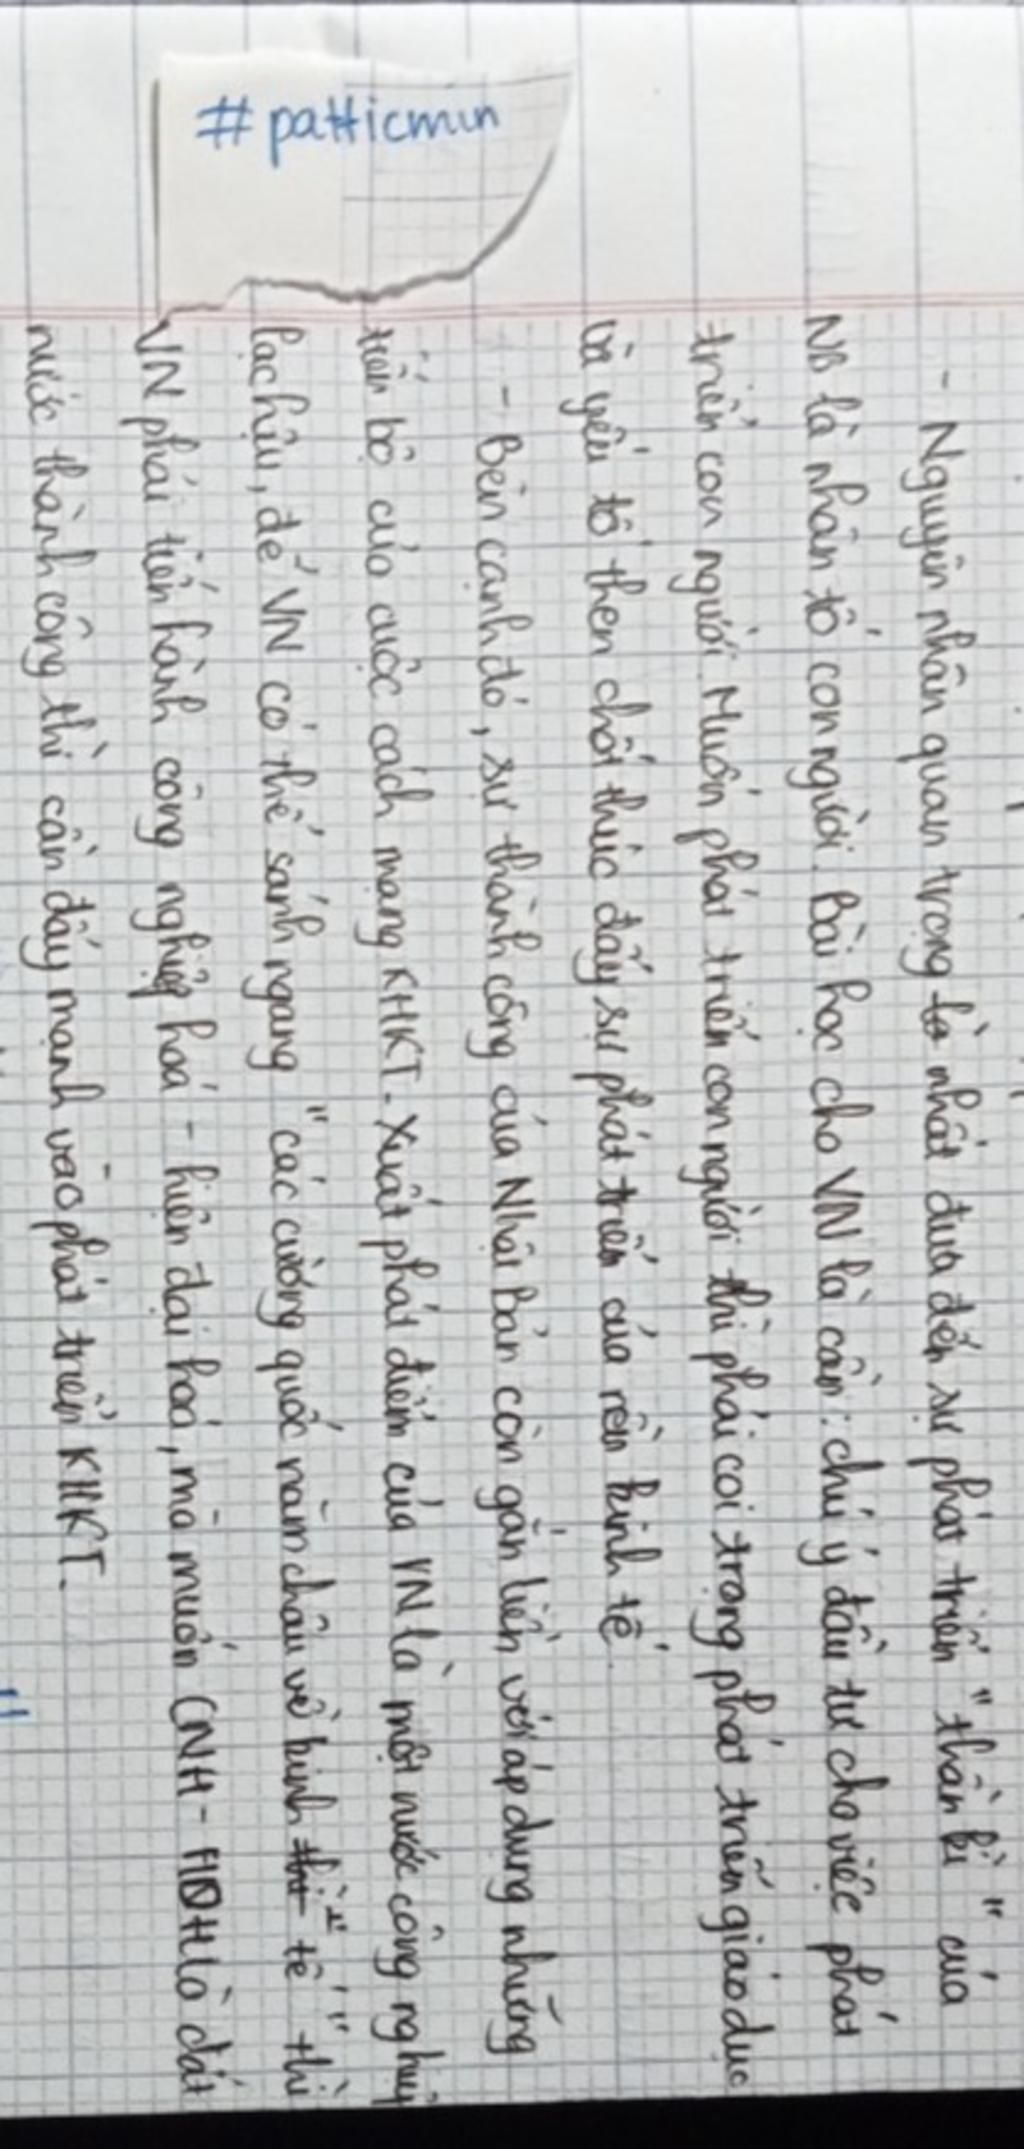 #patticmin
- Nguyên nhân quan trọng nhất đưa đến sự phát triển "thần kì" của
NB là nhân tố con người. Bài học cho VN là cần: chú ý đầu tư cho việc phát
triển con người. Muốn phát triển con người thì phải coi trọng phát triển giáo dục
là yếu tố then chốt thúc đẩy sự phát triển của nền kinh tế.
- Bên cạnh đó, sự thành công của Nhật Bản còn gắn liền với áp dụng những
tiến bộ của cuộc cách mạng KHKT. Xuất phát điểm của VN là một nước công nghiệp
lạc hậu, để VN có thể sánh ngang "các cường quốc năm châu về kinh tế" thì
VN phải tiến hành công nghiệp hoá - hiện đại hoá, mà muốn CNH - HĐH là đất
nước thành công thì cần đẩy mạnh vào phát triển KHKT.